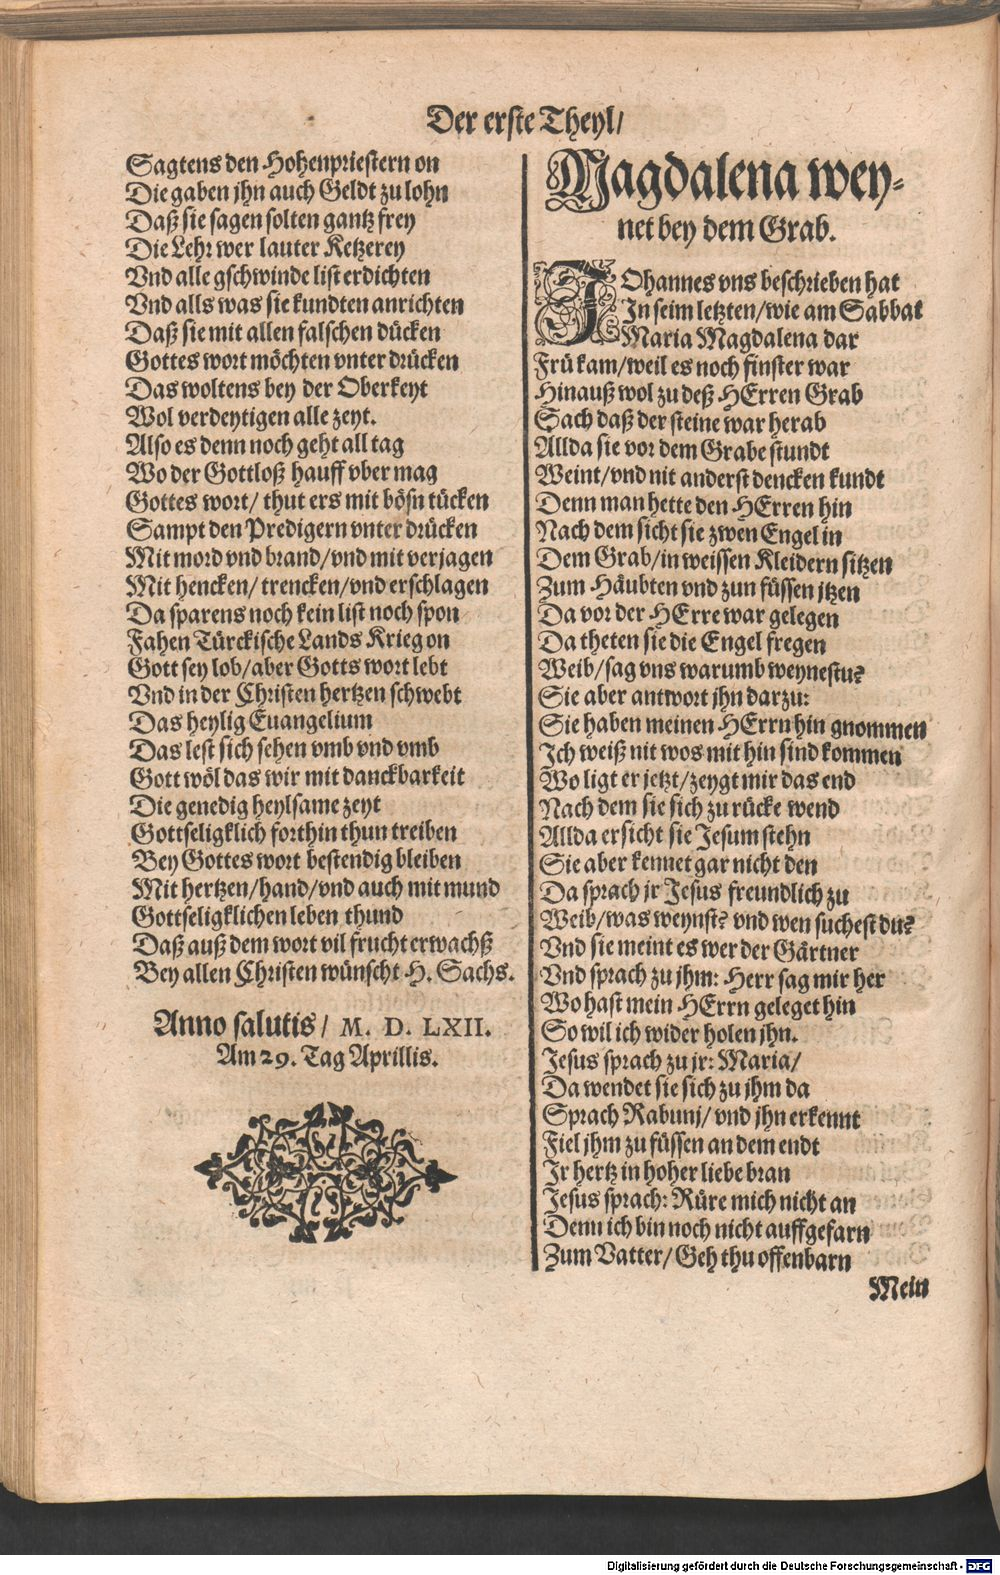 Der erste Theyl/
Sagtens den Hohenpriestern on
Die gaben jhn auch Geldt zu lohn
Daß sie sagen solten gantz frey
Die Lehr wer lauter Ketzerey
Vnd alle gschwinde list erdichten
Vnd alls was sie kundten anrichten
Daß sie mit allen falschen dücken
Gottes wort möchten vnter drücken
Das woltens bey der Oberkeyt
Wol verdeytigen alle zeyt.
Also es denn noch geht all tag
Wo der Gottloß hauff vber mag
Gottes wort/ thut ers mit bösn tücken
Sampt den Predigern vnter drücken
Mit mord vnd brand/vnd mit verjagen
Mit hencken/ trencken/vnd erschlagen
Da sparens noch kein list noch spon
Fahen Türckische Lands Krieg on
Gott sey lob/aber Gotts wort lebt
Vnd in der Christen hertzen schwebt
Das heylig Euangelium
Das lest sich sehen vmb vnd vmb
Gott wöl das wir mit danckbarkeit
Die genedig heylsame zeyt
Gottseligklich forthin thun treiben
Bey Gottes wort bestendig bleiben
Mit hertzen/hand/vnd auch mit mund
Gottseligklichen leben thund
Daß auß dem wort vil frucht erwachß
Bey allen Christen wünscht H. Sachs.
Anno salutis/ M. D. LXII.
Am 29. Tag Aprillis.
Magdalena wey-
net bey dem Grab.
JOhannes vns beschrieben hat
In seim letzten/wie am Sabbat
Maria Magdalena dar
Frü kam/weil es noch finster war
Hinauß wol zu deß HErren Grab
Sach daß der steine war herab
Allda sie vor dem Grabe stundt
Weint/vnd nit anderst dencken kundt
Denn man hette den HErren hin
Nach dem sicht sie zwen Engel in
Dem Grab/in weissen Kleidern sitzen
Zum Häubten vnd zun füssen jtzen
Da vor der HErre war gelegen
Da theten sie die Engel fregen
Weib/sag vns warumb weynestu?
Sie aber antwort jhn darzu:
Sie haben meinen HErrn hin gnommen
Ich weiß nit wos mit hin sind kommen
Wo ligt er jetzt/zeygt mir das end
Nach dem sie sich zu rücke wend
Allda ersicht sie Jesum stehn
Sie aber kennet gar nicht den
Da sprach jr Jesus freundlich zu
Weib/was weynst? vnd wen suchest du?
Vnd sie meint es wer der Gärtner
Vnd sprach zu jhm: Herr sag mir her
Wo hast mein HErrn geleget hin
So wil ich wider holen jhn.
Jesus sprach zu jr: Maria/
Da wendet sie sich zu jhm da
Sprach Rabuni/ vnd jhn erkennt
Fiel jhm zu füssen an dem endt
Ir hertz in hoher liebe bran
Jesus sprach: Rüre mich nicht an
Denn ich bin noch nicht auffgefarn
Zum Vatter/ Geh thu offenbarn
Mein
Digitalisierung gefördert durch die Deutsche Forschungsgemeinschaft - DFG